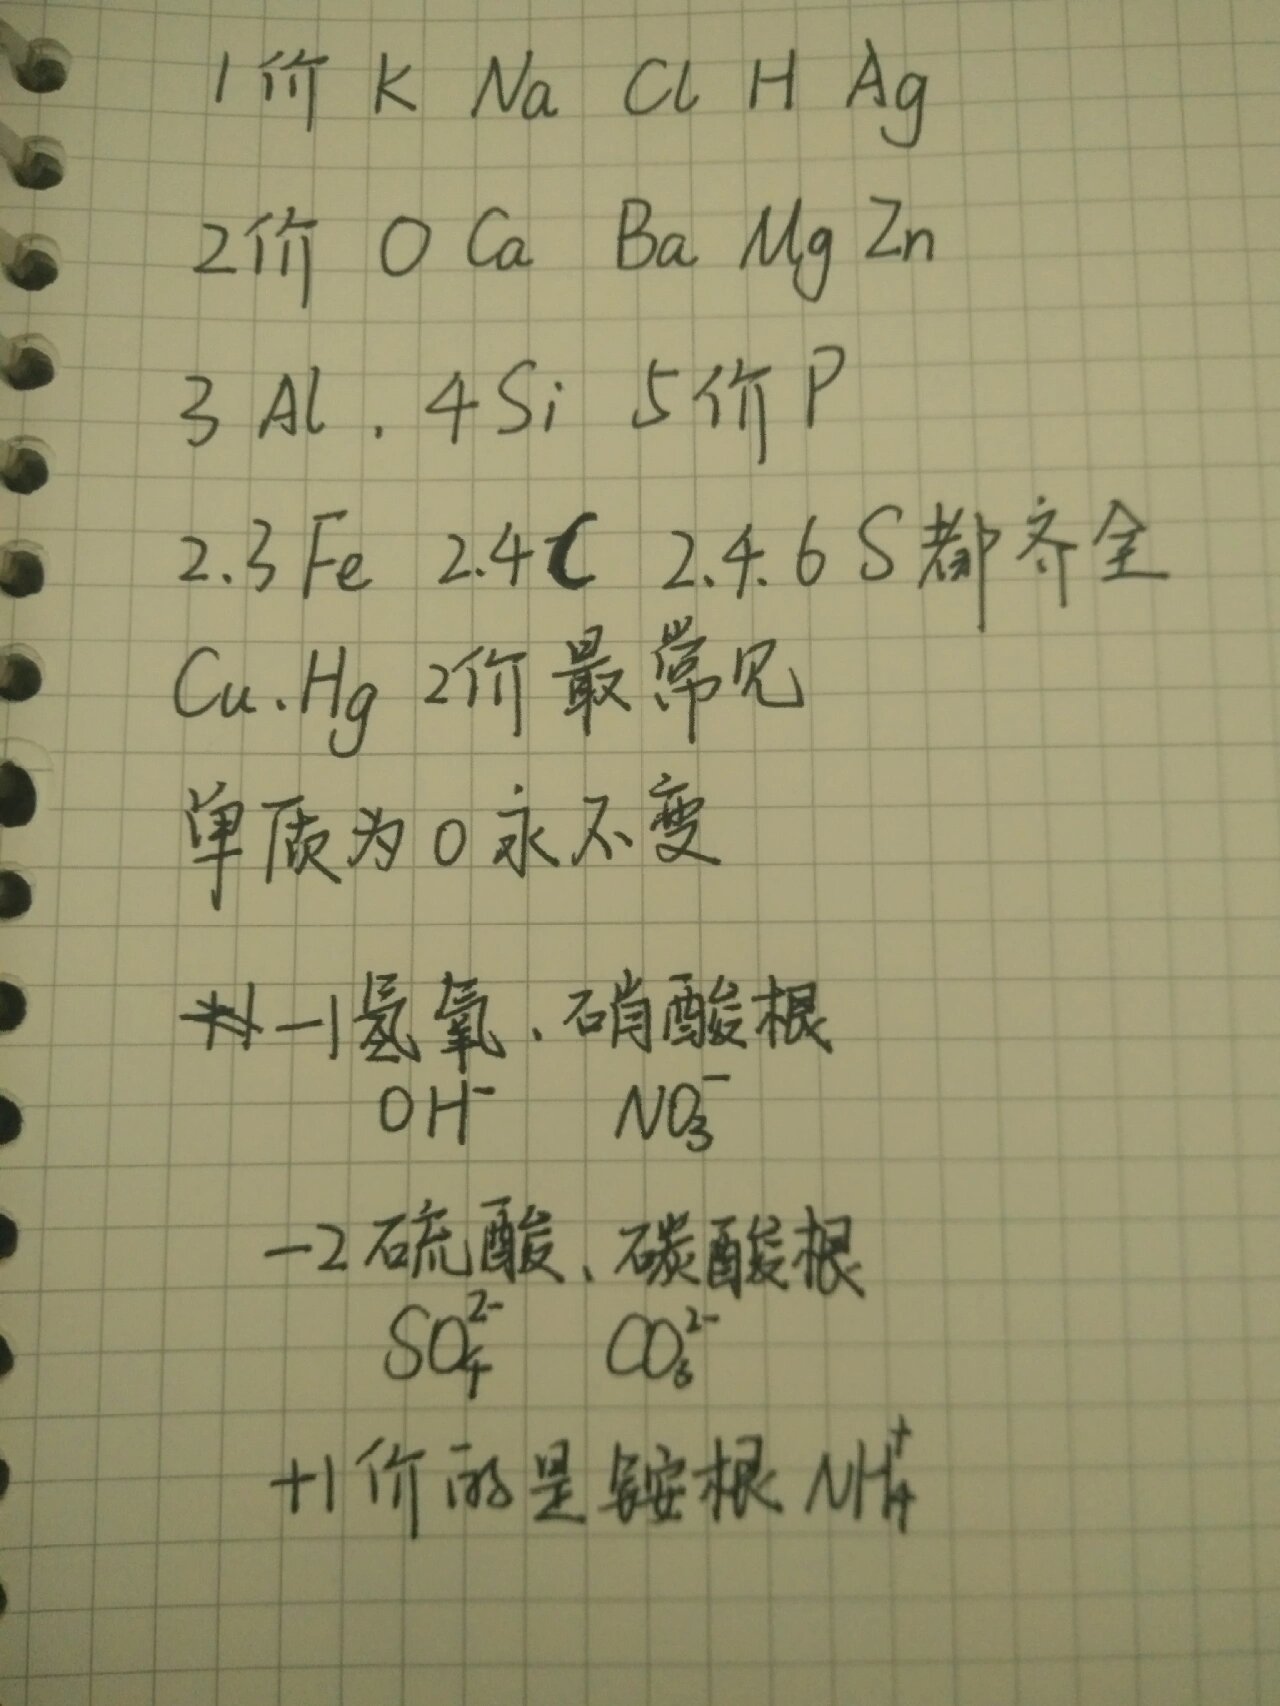 1价 K Na Cl H Ag
2价 O Ca Ba Mg Zn
3 Al . 4 Si 5价 P
2.3 Fe 2.4 C 2.4.6 S 都齐全
Cu.Hg 2价最常见
单质为0永不变
-1氢氧、硝酸根
OH⁻ NO₃⁻
-2硫酸、碳酸根
SO₄²⁻ CO₃²⁻
+1价的是铵根 NH₄⁺